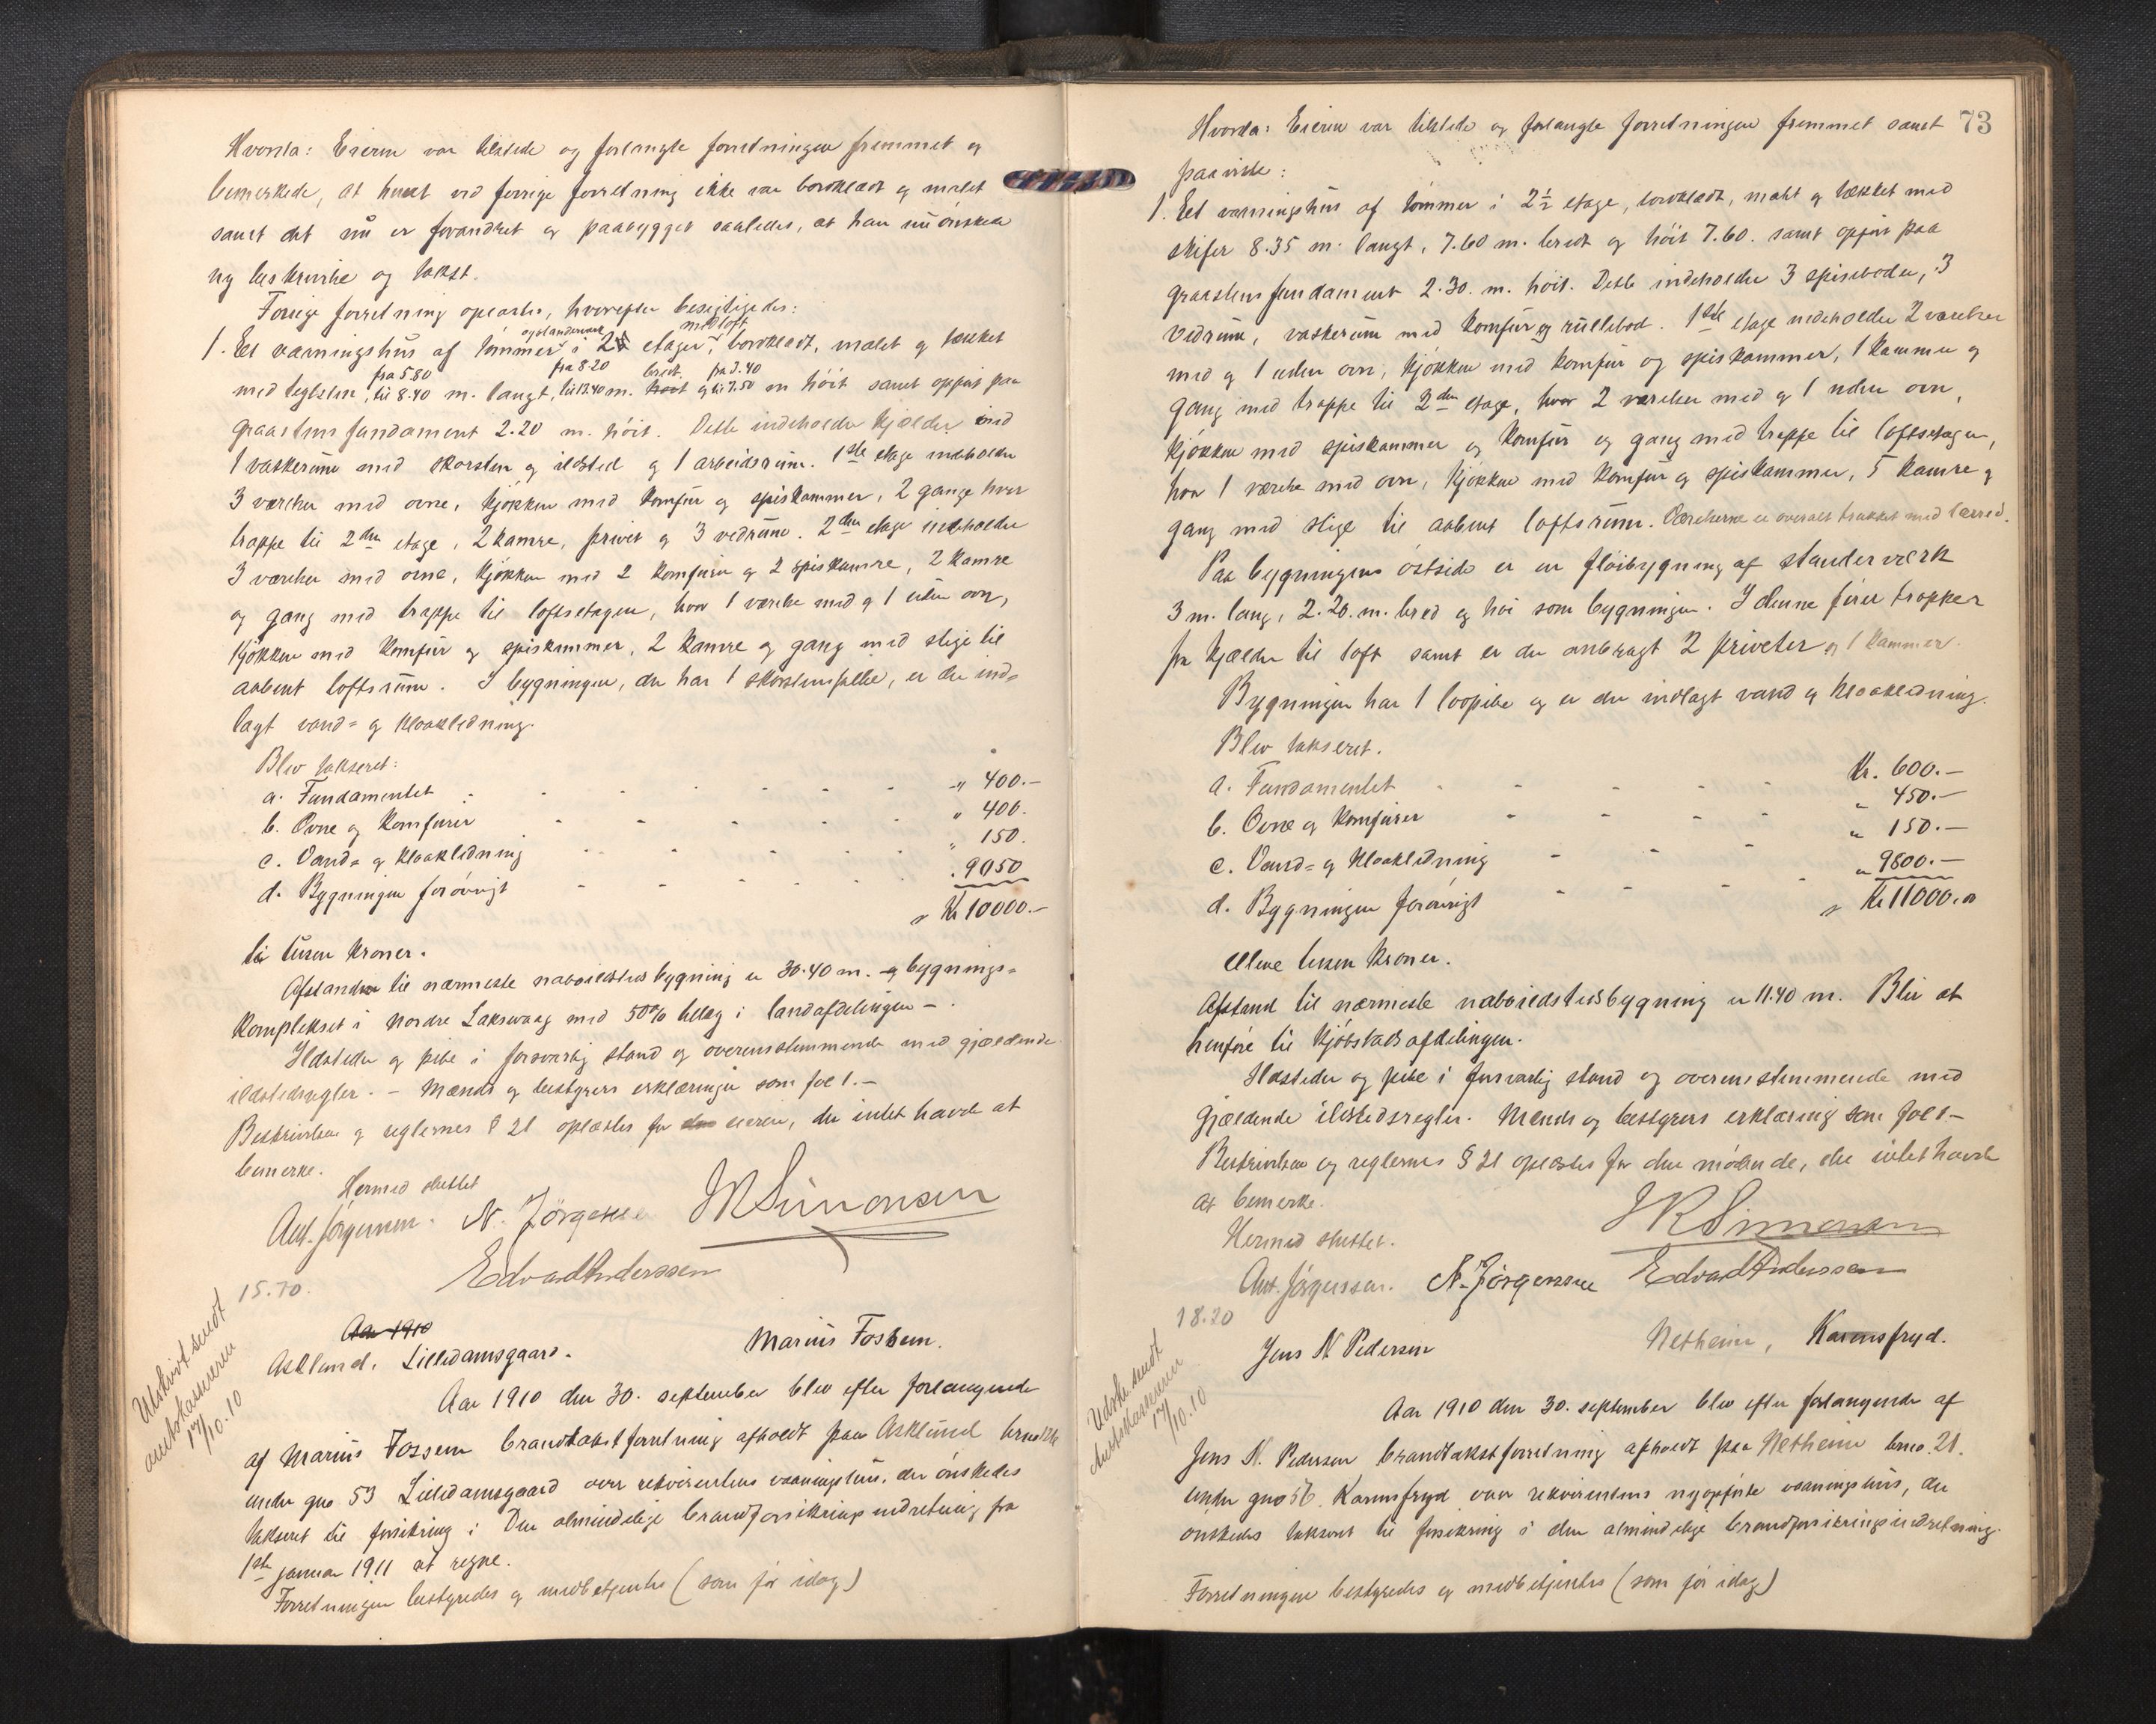 Hvorda: Eieren var tilstede og forlangte forretningen fremmet og
bemerkede, at huset ved forrige forretning ikke var bordklædt og malet
samt det nu er forandret og paabygget saaledes, at han nu ønsker
ny beskrivelse og takst.
Forrige forretning oplæstes, hvorefter besigtigedes:
1. Eet vaaningshus af tømmer og standerverk i 2 etager med loft, bordklædt, malet og tækket
med teglsten, fra 5.80 til 8.40 m. langt, fra 8.20 til 13.40 m. bredt og fra 3.40 til 7.50 m høit samt opført paa
graastens fundament 2.20 m. høit. Dette indeholder kjælder med
1 vaskerum med skorsten og ildsted og 1 arbeidsrum. 1ste etage indeholder
3 værelser med ovne, kjøkken med komfur og spiskammer, 2 gange hvor
trappe til 2den etage, 2 kamre, privet og 3 vedrum. 2den etage indeholder
3 værelser med ovne, kjøkken med 2 komfurer og 2 spiskamre, 2 kamre
og gang med trappe til loftsetagen, hvor 1 værelse med og 1 uden ovn,
kjøkken med komfur og spiskammer, 2 kamre og gang med stige til
aabent loftsrum. I bygningen, der har 1 skorstenspibe, er der ind-
lagt vand- og kloakledning.
Blev takseret:
a. Fundamentet - - - - - " 400.-
b. Ovne og komfurer - - - - - " 400.
c. Vand- og kloakledning - - - - " 150.
d. Bygningen forøvrigt - - - - - 9050
Kr 10000.-
ti tusen kroner.
Afstanden til nærmeste naboildstedsbygning er 30.40 m. og bygnings-
komplekset i Nordre Laksevaag med 50% tillæg i landafdelingen -.
Ildsteder og pibe i forsvarlig stand og overensstemmende med gjældende
ildstedsregler. - Mænds og bestyrers erklæringer som fol 1. -
Beskrivelsen og reglernes § 21 oplæstes for eieren, der intet havde at
bemerke.
Hermed sluttet
Ant. Jørgensen. N. Jörgensen JRSimonsen
Edvard Anderssen
15.70.
Udskrivt sendt
amtskassereren
17/10.10
Aar 1910
Asklund, Lilledamsgaard. Marius Fossen.
Aar 1910 den 30. september blev efter forlangende
af Marius Fossen brandtakstforretning afholdt paa Asklund brno
under gno 53 Lilledamsgaard over rekvirentens vaaningshus, der ønskedes
takseret til forsikring i Den almindelige brandforsikringsindretning fra
1ste januar 1911 at regne.
Forretningen bestyredes og medbetjentes (som før idag)
73
Hvorda: Eieren var tilstede og forlangte forretningen fremmet samt
paaviste:
1. Eet vaaningshus af tømmer i 2½ etage, bordklædt, malt og tækket med
skifer 8.35 m. langt, 7.60 m. bredt og høit 7.60. samt opført paa
graastens fundament 2.30. m. høit. Dette indeholder 3 spiseboder, 3
vedrum, vaskerum med komfur og rullebod. 1ste etage indeholder 2 værelser
med og 1 uden ovn, kjøkken med komfur og spiskammer, 1 kammer og
gang med trappe til 2den etage, hvor 2 værelser med og 1 uden ovn,
kjøkken med spiskammer og komfur og gang med trappe til loftsetagen,
hvor 1 værelse med ovn, kjøkken med komfur og spiskammer, 5 kamre og
gang med stige til aabent loftsrum. Værelserne er overalt trukket med lærred.
Paa bygningens østside er en fløibygning af standerværk
3 m. lang, 2.20. m. bred og høi som bygningen. I denne fører trapper
fra kjælder til loft samt er der anbragt 2 priveter og 1 kammer.
Bygningen har 1 loopibe og er der indlagt vand og kloakledning.
Blev takseret.
a. Fundamentet - - - - - Kr. 600.-
b. Ovne og komfurer - - - - - 450.-
c. Vand- og kloakledning - - - - " 150.-
d. Bygningen forøvrigt - - - - " 9800.-
Kr 11000.00
elleve tusen kroner.
Afstand til nærmeste naboildstedsbygning er 11.40 m. Blir at
henføre til kjøbstadsafdelingen.
Ildsteder og pibe i forsvarlig stand og overensstemmende med
gjældende ildstedsregler. Mænds og bestyrers erklæring som fol 1. -
Beskrivelsen og reglernes § 21 oplæstes for den mødende, der intet havde
at bemerke.
Hermed sluttet.
JRSimonsen
Ant. Jørgensen. N. Jörgensen Edvard Anderssen
18.20
Udskr. sendt
Amtskassereren
17/10.10
Jens N. Pedersen Netheim, Karensfryd.
Aar 1910 den 30. september blev efter forlangende af
Jens N. Pedersen brandtakstforretning afholdt paa Netheim brno. 21.
under gno 56. Karensfryd over rekvirentens nyopførte vaaningshus, der
ønskedes takseret til forsikring i den almindelige brandforsikringsindretning.
Forretningen bestyredes og medbetjentes (som før idag)